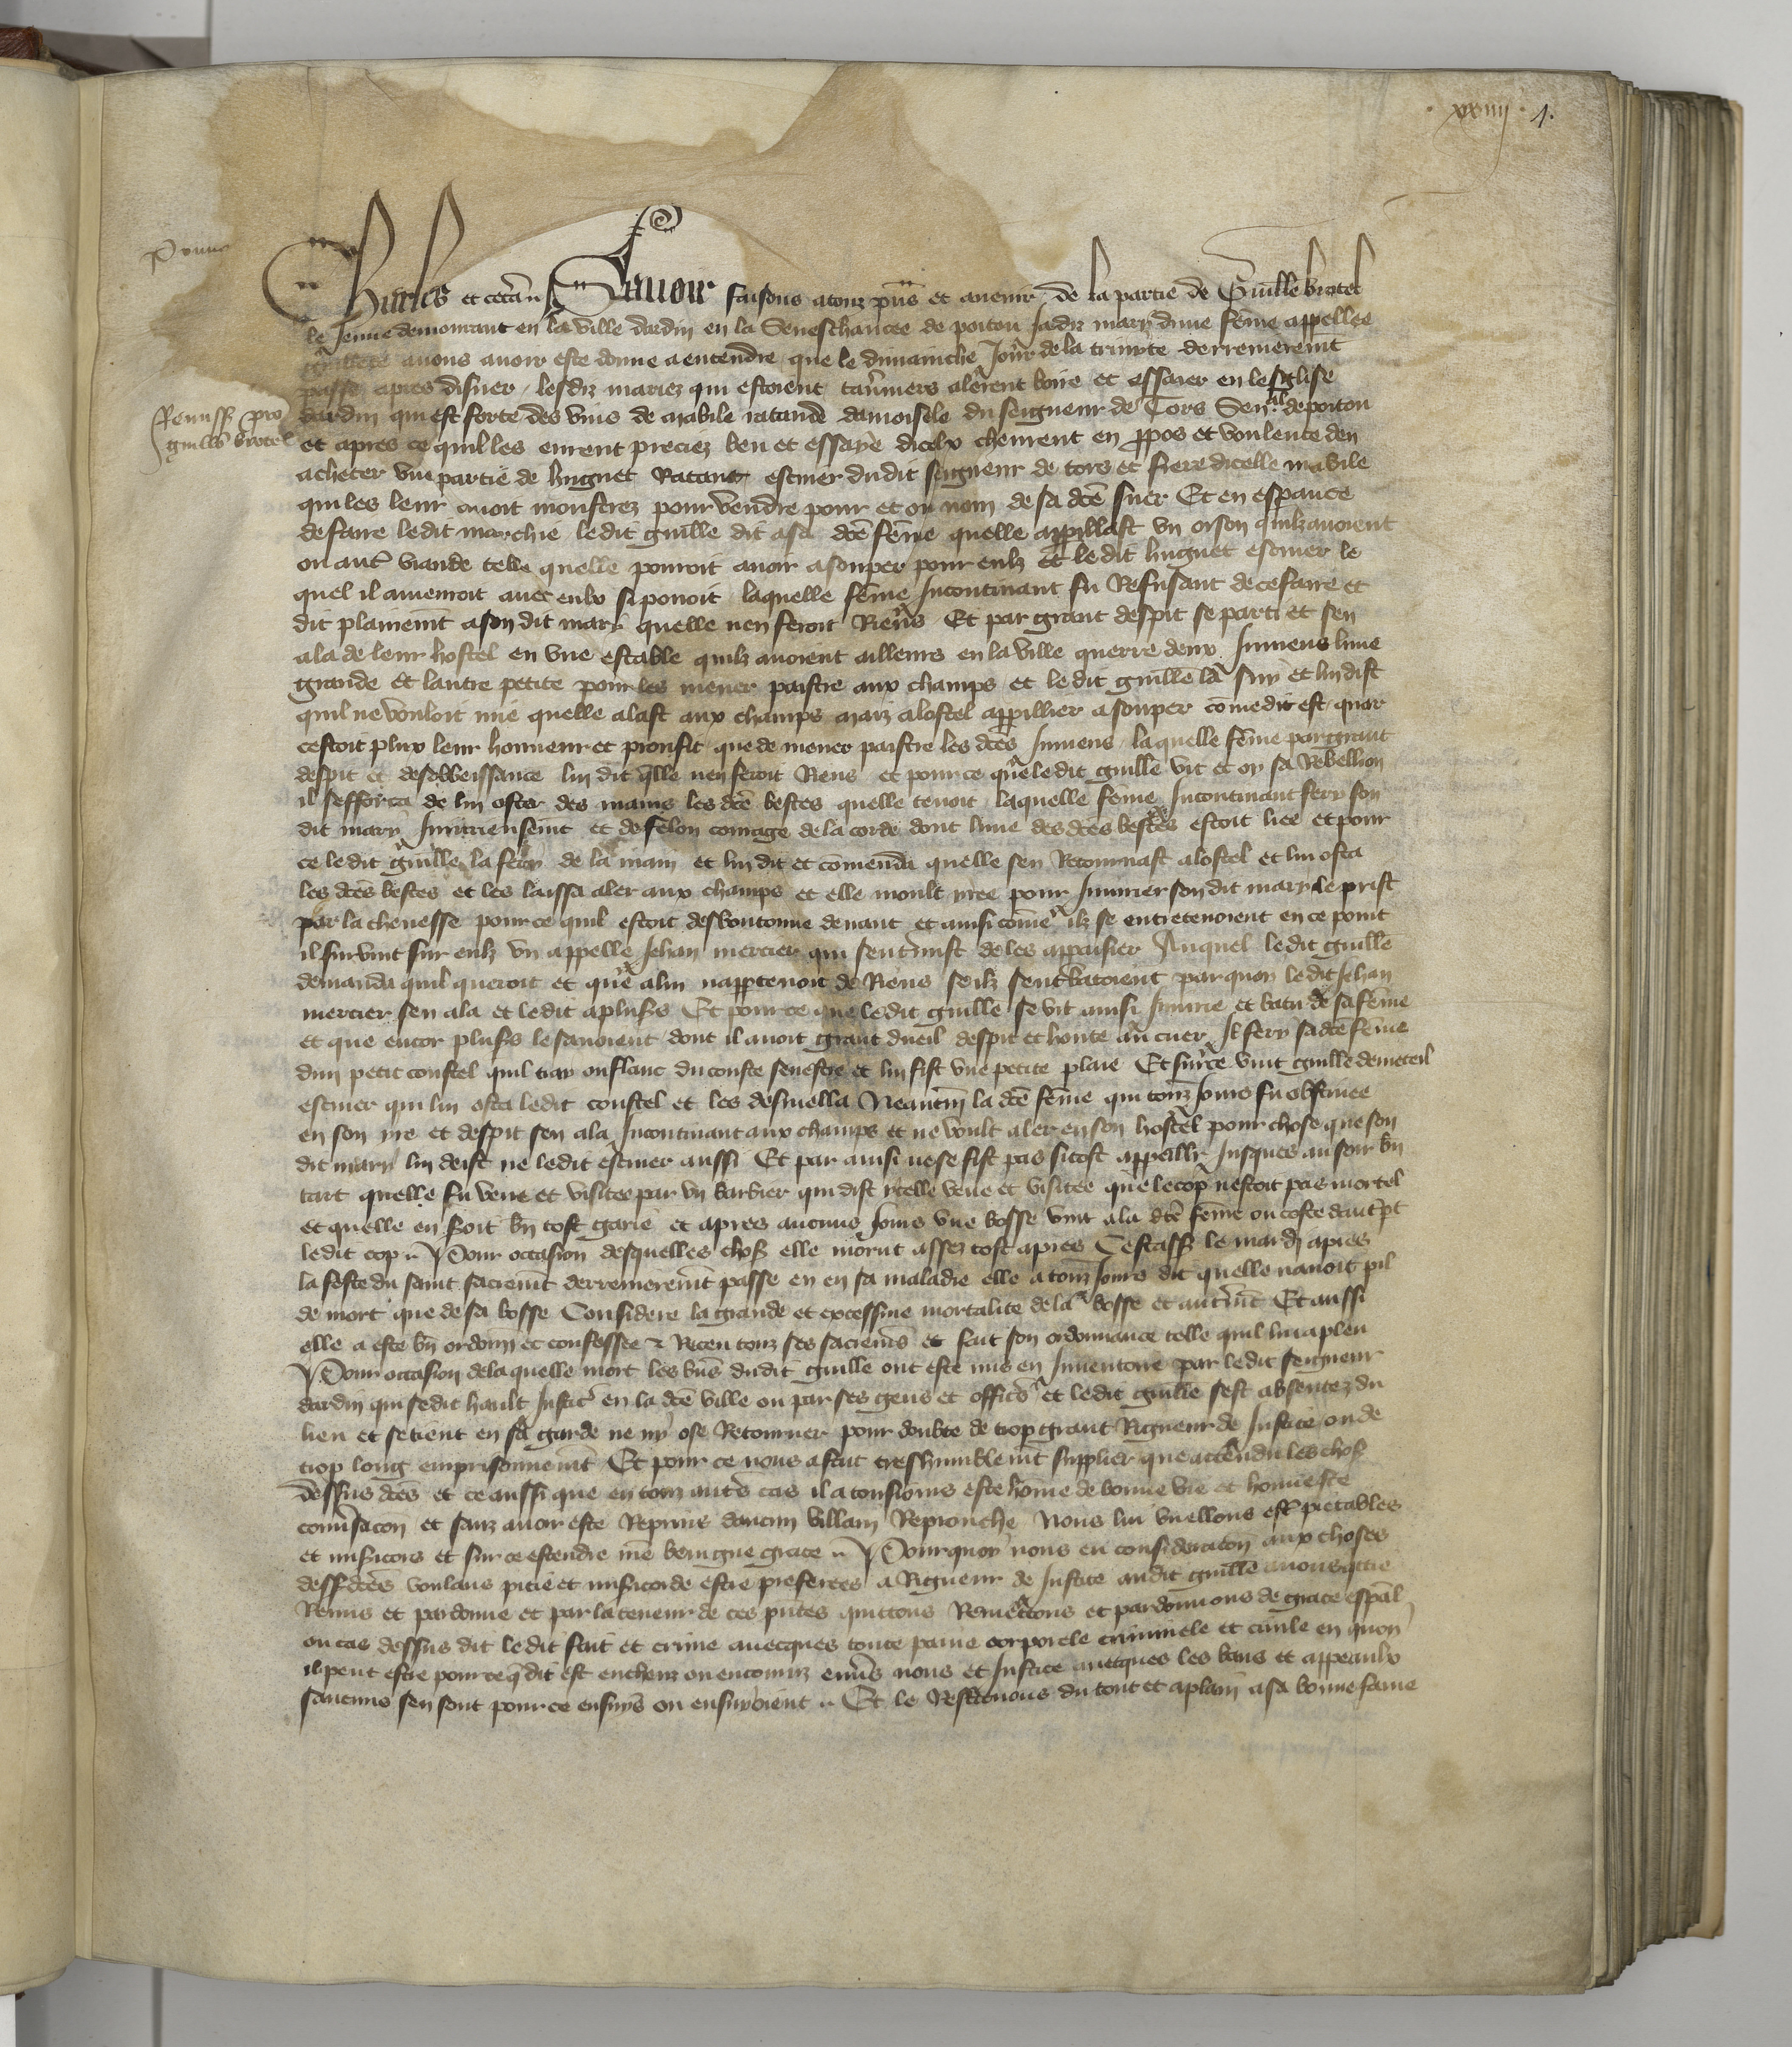 xxiiij . 1.
Charles et cetera Savoir faisons a touz pñs et avenir de la partie de Guille brotel
le Jenne demourant en la ville dardin en la Seneschaucee de poitou Jadiz mary dune fẽme appellee
guillete avons avoir este donne a entendre que le dimainche Jour de la trinite derreneremẽt
passe apres disner lesdiz mariez qui estoient taverniers alerent boire et essaier en leglise
Remissio pro
guillo brotel
dardin qui est forte des vins de mabile ratande damoisele du seigneur de Tors Senal de poitou
et apres ce quil les eurent preciez beu et essaye diceulx cheirent en ppos et voulente den
acheter une partie de huguet Ratant escuier dudit seigneur de tors et frere dicelle mabile
qui les leur avoit monstrez pour vendre pour et ou nom de sa dcẽ suer Et en esperance
de faire ledit marchie ledit guille dit a sa dcẽ fẽme quelle appillast un oison quilz avoient
ou autre viande telle quelle pouroit avoir a souper pour eulz et ledit huguet escuier le
quel il amenroit avec eulx si povoit laquelle fẽme Incontinant fu Refusant de ce faire et
dit plainemẽt a son dit mary quelle nen feroit Riens Et par grant despit se parti et sen
ala de leur hostel en une estable quilz avoient ailleurs en la ville querre deux Jumens lune
grande et lautre petite pour les mener paistre aux champs et ledit guille la suy et luy dist
quil ne vouloit mie quelle alast aux champs maiz a lostel appillier a souper cõme dit est quar
cestoit plux leur honneur et proufit que de mener paistre les dcẽs Jumens laquelle fẽme par grant
despit et desobbeissance lui dit qlle nen feroit Riens et pour ce que ledit guille vit et oy sa Rebellion
il sefforca de lui oster des mains les dcẽs bestes quelle tenoit laquelle fẽme Incontinant fery son
dit mary Injurieusemẽt et de felon courage de la corde dont lune des dcẽs bestes estoit liee et pour
ce ledit guille la fery de la main et lui dit et cõmenda quelle sen Retournast a lostel et lui osta
les dcẽs bestes et les laissa aler aux champs et elle moult iree pour Injurier son dit mary le prist
par la chevesse pour ce quil estoit desboutonne devant et ainsi cõme ilz se entretenoient en ce point
il survint sur eulz un appelle Jehan mercier qui sentremist de les appaisier Auquel ledit guille
demanda quil queroit et que a lui nappartenoit de Riens se ilz sentrebatoient par quoy ledit Jehan
mercier sen ala et ledit a plusrs Et pour ce que ledit guille se vit ainsi Injurie et batu de sa fẽme
et que encor plusrs le savoient dont il avoit grant dueil despit et honte au cuer Il fery sa dcẽ fẽme
dun petit coustel quil tray ou flanc du coste senestre et lui fist une petite plaie Et sur ce vint guille deneteil
escuier qui lui osta ledit coustel et les desmella Neantm̃ la dcẽ fẽme qui touz Jours fu obstinee
en son ire et despit sen ala Incontinant aux champs et ne voult aler en son hostel pour chose que son
dit mary lui deist ne ledit escuier aussi Et par ainsi ne se fist pas si tost appeillr Jusques au soir bñ
tart quelle fu veue et visitee par un barbier qui dist icelle veue et visitee que le cop nestoit pas mortel
et quelle en seroit bñ tost garie et apres aucuns Jours une bosse vint a la dcẽ fẽme ou coste dautre pt
ledit cop Pour occasion desquelles choses elle morut assez tost apres Cestass. le mardi apres
la feste du saint sacremẽt derreneremẽt passe en en sa maladie elle a touz Jours dit quelle navoit pil
de mort que de sa bosse Considere la grande et excessive mortalite de la bosse et autremẽt Et aussi
elle a este bñ ordoen et confessee & Receu touz ses sacremẽs et fait son ordonnance telle quil lui a pleu
Pour occasion de laquelle mort les biẽs dudit guille ont este mis en Inventoire par ledit seigneur
dardin qui se dit hault Justicr en la dcẽ ville ou par ses gens et officrs et ledit guille sest absentez du
lieu et se tient en sa garde ne ny ose Retourner pour doubte de trop grant Rigueur de Justice ou de
trop long emprisonnemẽt Et pour ce nous a fait tres humblemẽt supplier que attendu les choses
dessus dcẽs et ce aussi que en touz autres cas il a tousjours este hõme de bonne vie et honneste
conversacon et sanz avoir este Reprins daucun villain Reprouche Nous lui vueillons estre piteables
et misicors et sur ce estendre nre benigne grace Pourquoy nous en consideracon aux choses
dessdcẽs voulans pitie et misicorde estre preferees a Rigueur de Justice audit guille avons quittie
Remis et pardonne et par la teneur de ces pñtes quittons Remettons et pardonnons de grace espãl
ou cas dessus dit ledit fait et crime avecques toute paine corporele criminele et civile en quoy
il peut estre pour ce q̃ dit est encheuz ou encouruz envers nous et Justice avecques les bans et appeaulx
saucuns sen sont pour ce ensuys ou ensuivoient Et le Restituons du tout et a plain a sa bonne fame